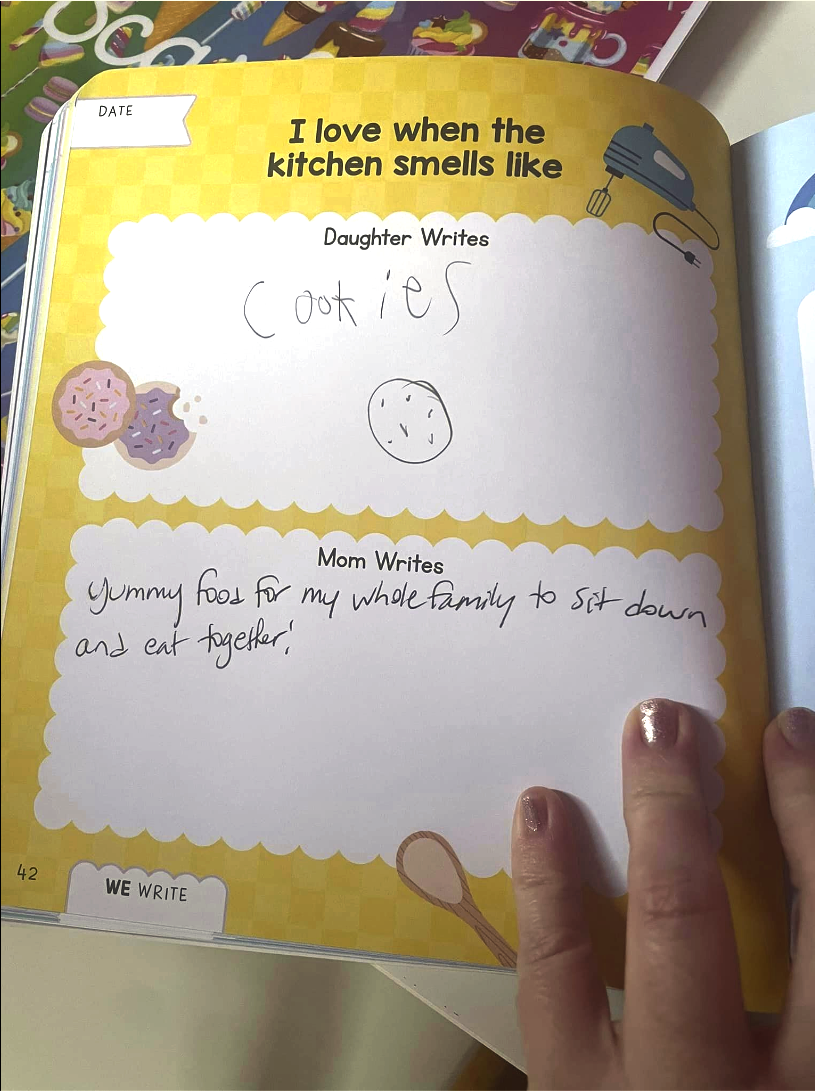 Sca
DATE
I love when the
kitchen smells like
Daughter Writes
Cookies
Mom Writes
Yummy food for my whole family to sit down
and eat together!
42
WE WRITE